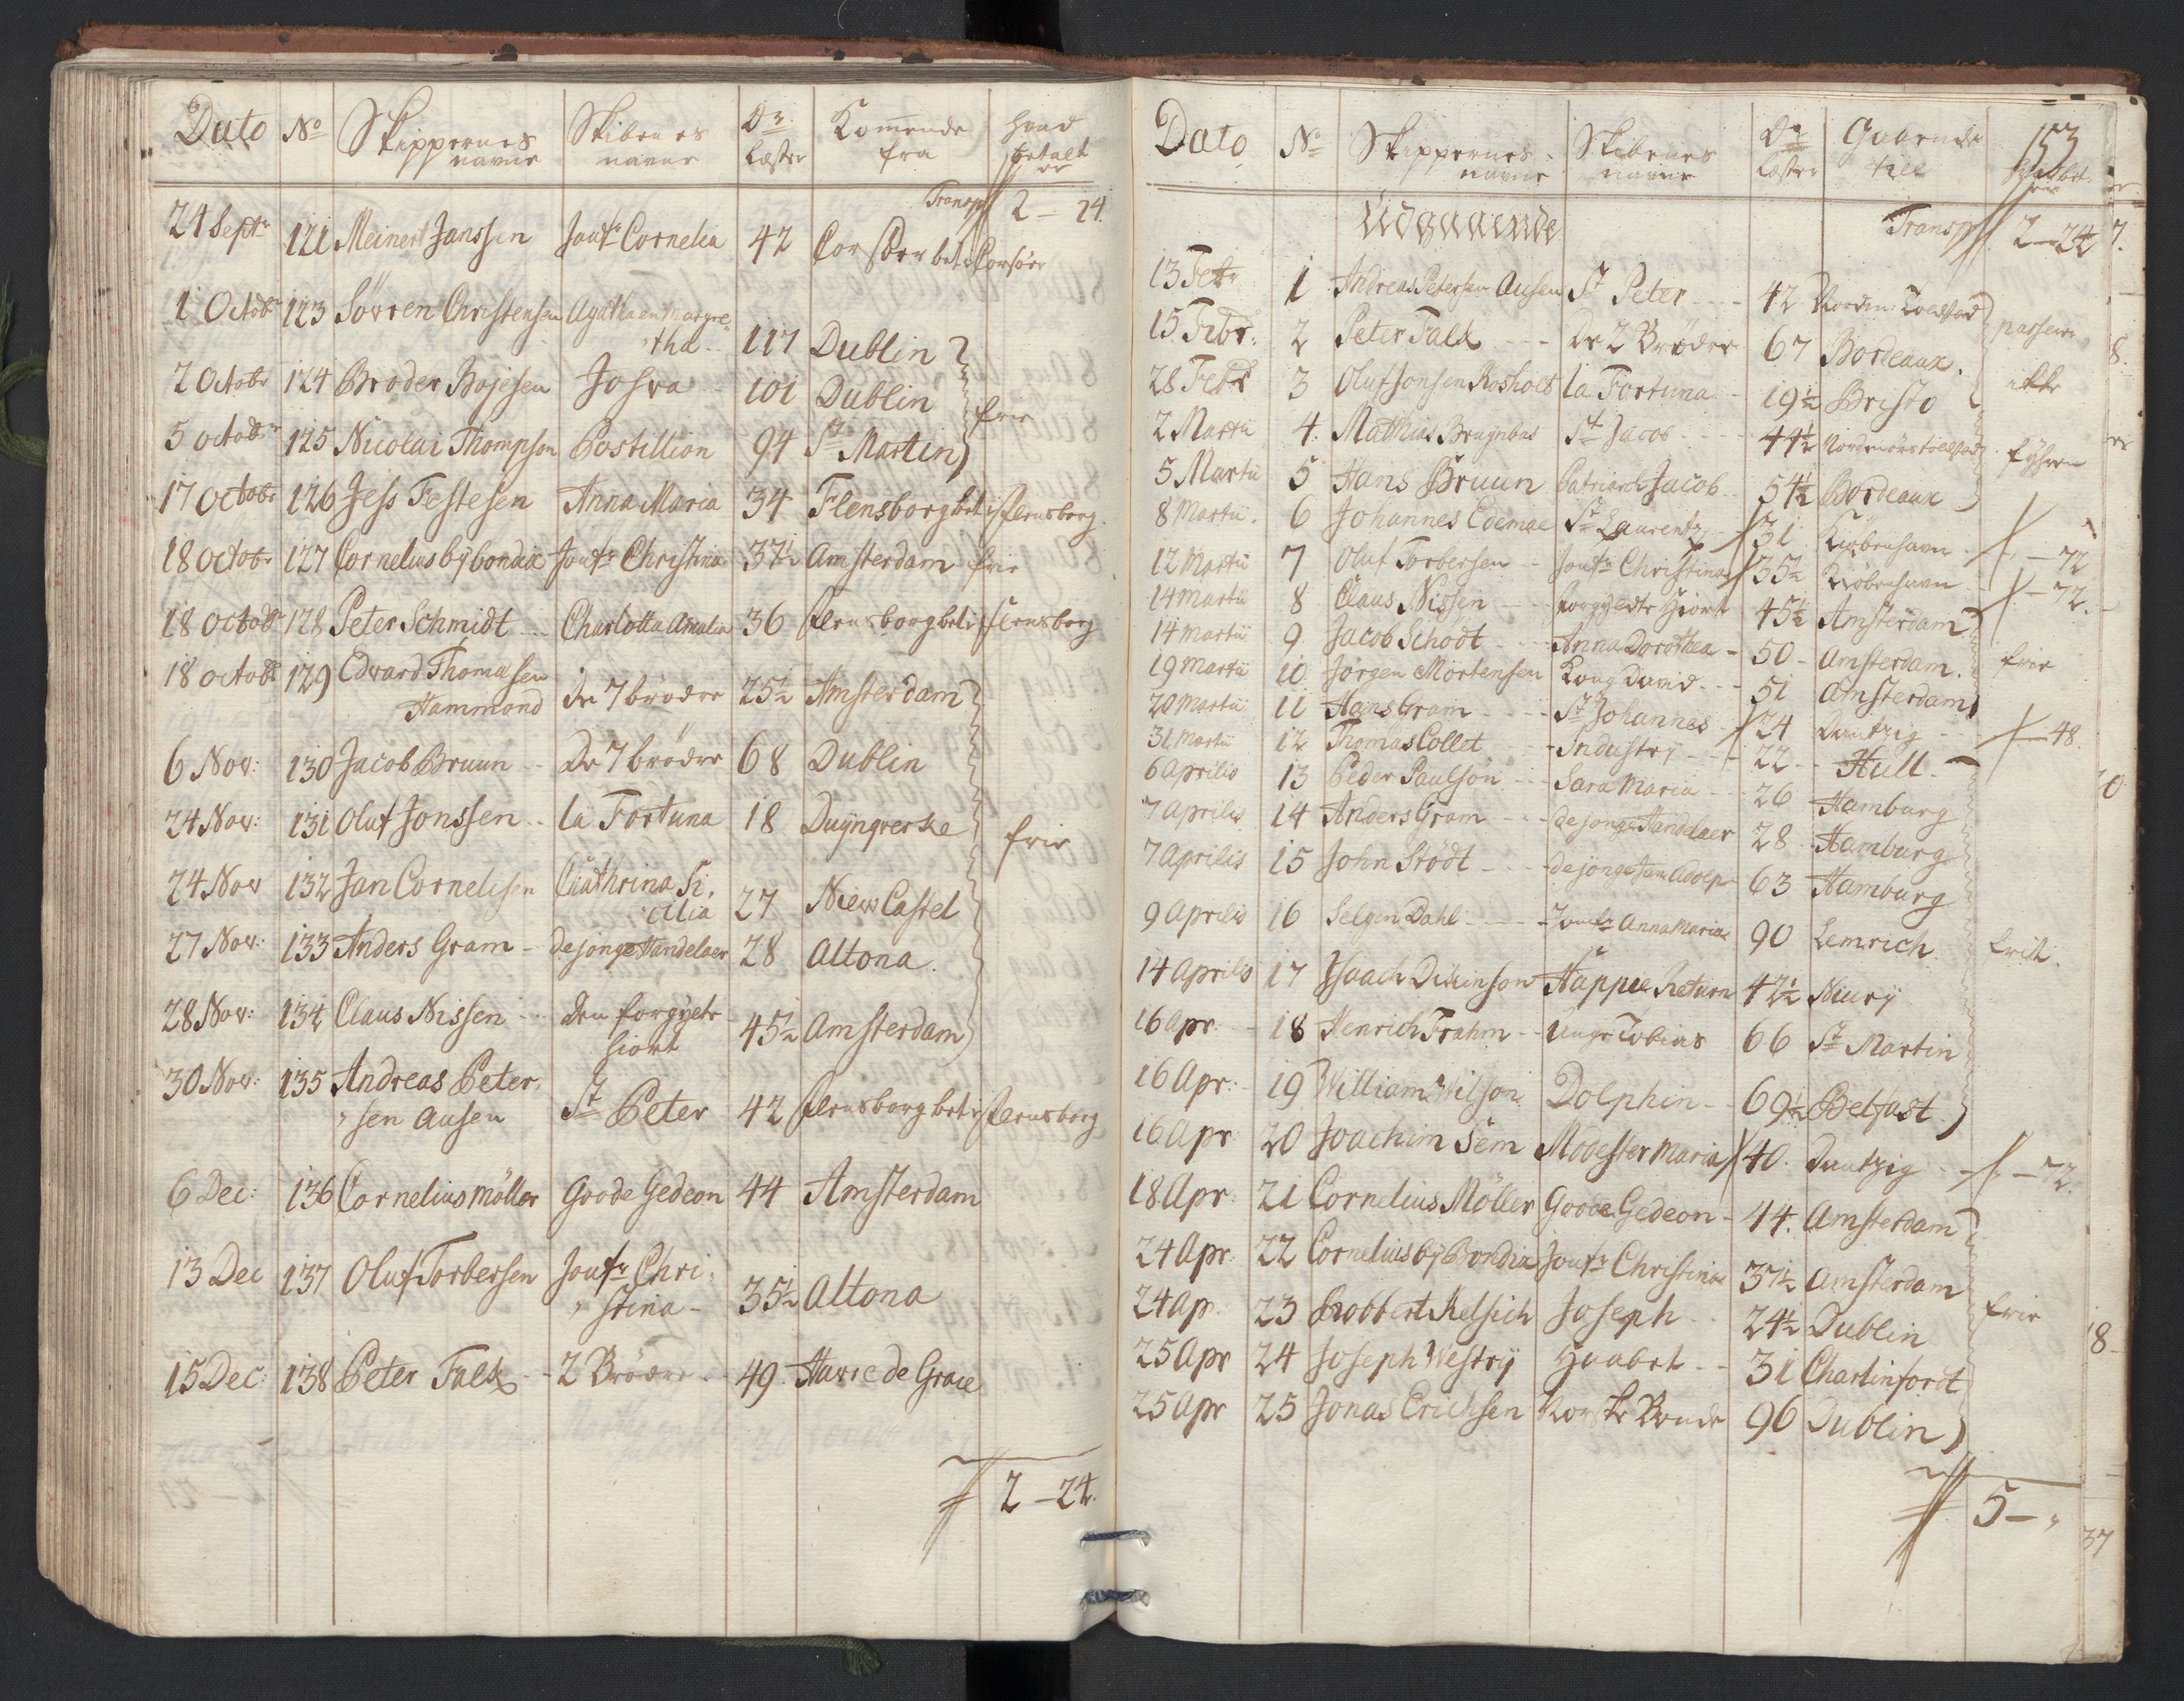 Dato No Skippernes navne Skibenes navne Dr. Læster Komende fra hvad betalt er
Transp 2 — 24.
24 Septr 121 Meinert Janssen Jonfr Cornelia 42 Corsöer bet i Corsöer
1 Octobr 123 Sörren Christensen Agatha en Margre-
tha 117 Dublin
2 Octobr 124 Broder Bojesen Josva 101 Dublin
frie
5 octobr 125 Nicolai Thompson Postillion 94 St Martin
17 Octobr 126 Jess Festesen Anna Maria 34 Flensborg bet i Flensborg.
18 octobr 127 Cornelius bÿ bondix Jonfr Christina 37½ Amsterdam frie
18 Octobr 128 Peter Schmidt Charlotta Amalia 36 Flensborg bet i Flensborg
18 octobr 129 Edvard Thomassen
Hammond de 7 brödre 25½ Amsterdam
6 Nov: 130 Jacob Bruun De 7 brödre 68 Dublin
24 Nov: 131 Oluf Jonssen la Fortuna 18 Duynqverke
frie
24 Nov 132 Jan Cornelisen Cathrina Si-
cilia 27 Niew Castel
27 Nov: 133 Anders Gram de jonge Handelaer 28 Altona.
28 Nov: 134 Claus Nissen den forgyete
hiort 45½ Amsterdam
30 Nov: 135 Andreas Peter-
sen Ausen St Peter 42 Flensborg bet i Flensborg
6 Dec: 136 Cornelius Möller Goode Gedeon 44 Amsterdam
13 Dec 137 Oluf Torbersen Jonfr Chri-
stina 35½ Altona
15 Dec: 138 Peter Falck 2 Brödre 49 Havre de Grace
2 — 24.
Dato No Skippernes navne Skibenes navne Dr. Læster Gaaende till 153
Udgaaende Transp 2 — 24
13 Febr 1 Andreas Petersen Ausen St Peter 42 Nordm: Toldsted
passerer
15 Febr: 2 Peter Falck De 2 Brödre 67 Bordeaux.
28 Febr 3 Oluf Jonsen Rosholt la Fortuna 19½ Bristo
ikke
2 Martii 4. Mathias Bruynbas St Jacob 44½ Nordmörs toldsted
fyhren
5 Martii 5 Hans Bruun Patriarch Jacob 54½ Bordeaux
8 Martii. 6 Johannes Edemae St Laurentz 31 Kiöbenhavn — 72
12 Martii 7 Oluf Torbersen Jonfr Christina 35½ Kiöbenhavn — 72.
14 Martii 8 Claus Nissen forgyldte Hiort 45½ Amsterdam
14 Martii 9 Jacob Schodt Anna Dorothea 50 Amsterdam.
frie
19 Martii 10 Jörgen Mortensen Kong David 51 Amsterdam
20 Martii 11 Hans Gram St Johannes 24 Dantzig — 48.
31 Martii 12 Thomas Collet Industrij 22 Hull
6 Aprilis 13 Peder Paulson Sara Maria 26 Hamburg
7 Aprilis 14 Anders Gram de jonge Handelaer 28 Hamburg
7 Aprilis 15 John Stödt de jonge Jan Adolp 63 Hamburg
9 Aprilis 16 Selgen Dahl Jomfr Anna Maria 90 Lemrich
frit.
14 Aprilis 17 Isaach Dikinson Happie Return 42½ Niury
16 Apr: 18 Henrich Frahm Unge Tobias 66 St Martin
16 Apr: 19 William Wilson Dolphin 69½ Belfast
16 Apr 20 Joachim Sem Möester Maria 40. Dantzig — 72.
18 Apr. 21 Cornelius Möller Goode Gedeon 44. Amsterdam
24 Apr: 22 Cornelius bÿ Bondix Jonfr Christina 37½ Amsterdam
24 Ap. 23 Robbert Kelsich Joseph 24½ Dublin
frie
25 Apr 24 Joseph Westrij Haabet 31 Charlinfordt
25 Apr 25 Jonas Erichsen Norske Bonde 96 Dublin
5 — "